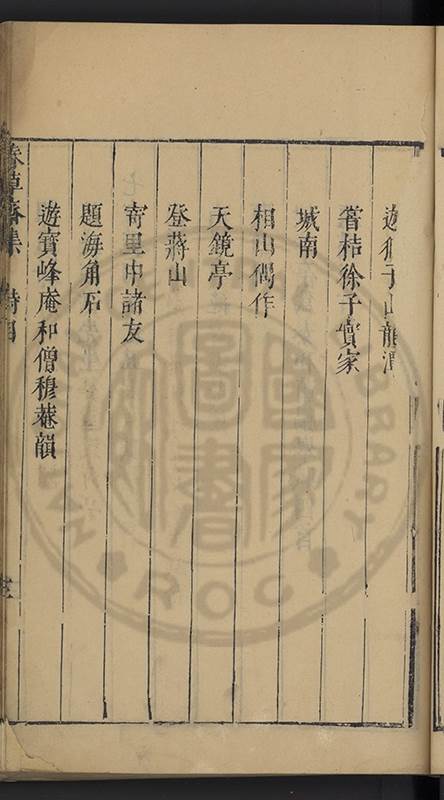 遊仙子山龍潭
暮秸徐子賓家
城南
相山偶作
天鏡亭
登蔣山
寄里中諸友
題海角石
遊寶峰庵和僧穆菴韻
春草齋集 詩目
國家圖書館